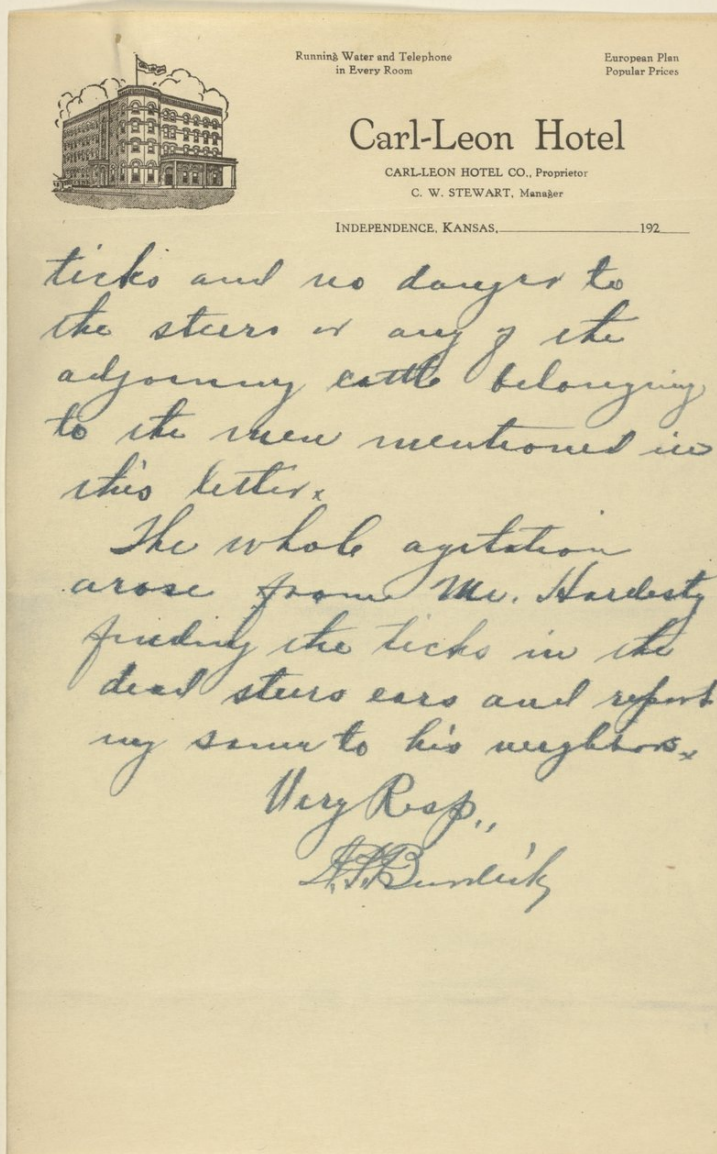 Running Water and Telephone
in Every Room
European Plan
Popular Prices
Carl-Leon Hotel
CARL-LEON HOTEL CO., Proprietor
C. W. STEWART, Manager
INDEPENDENCE, KANSAS, 192
ticks and no danger to
the steers or any of the
adjoining cattle belonging
to the men mentioned in
this letter.
The whole agitation
arose from Mr. Hardesty
finding the ticks in the
dead steers ears and report
ing same to his neighbors.
Very Resp.,